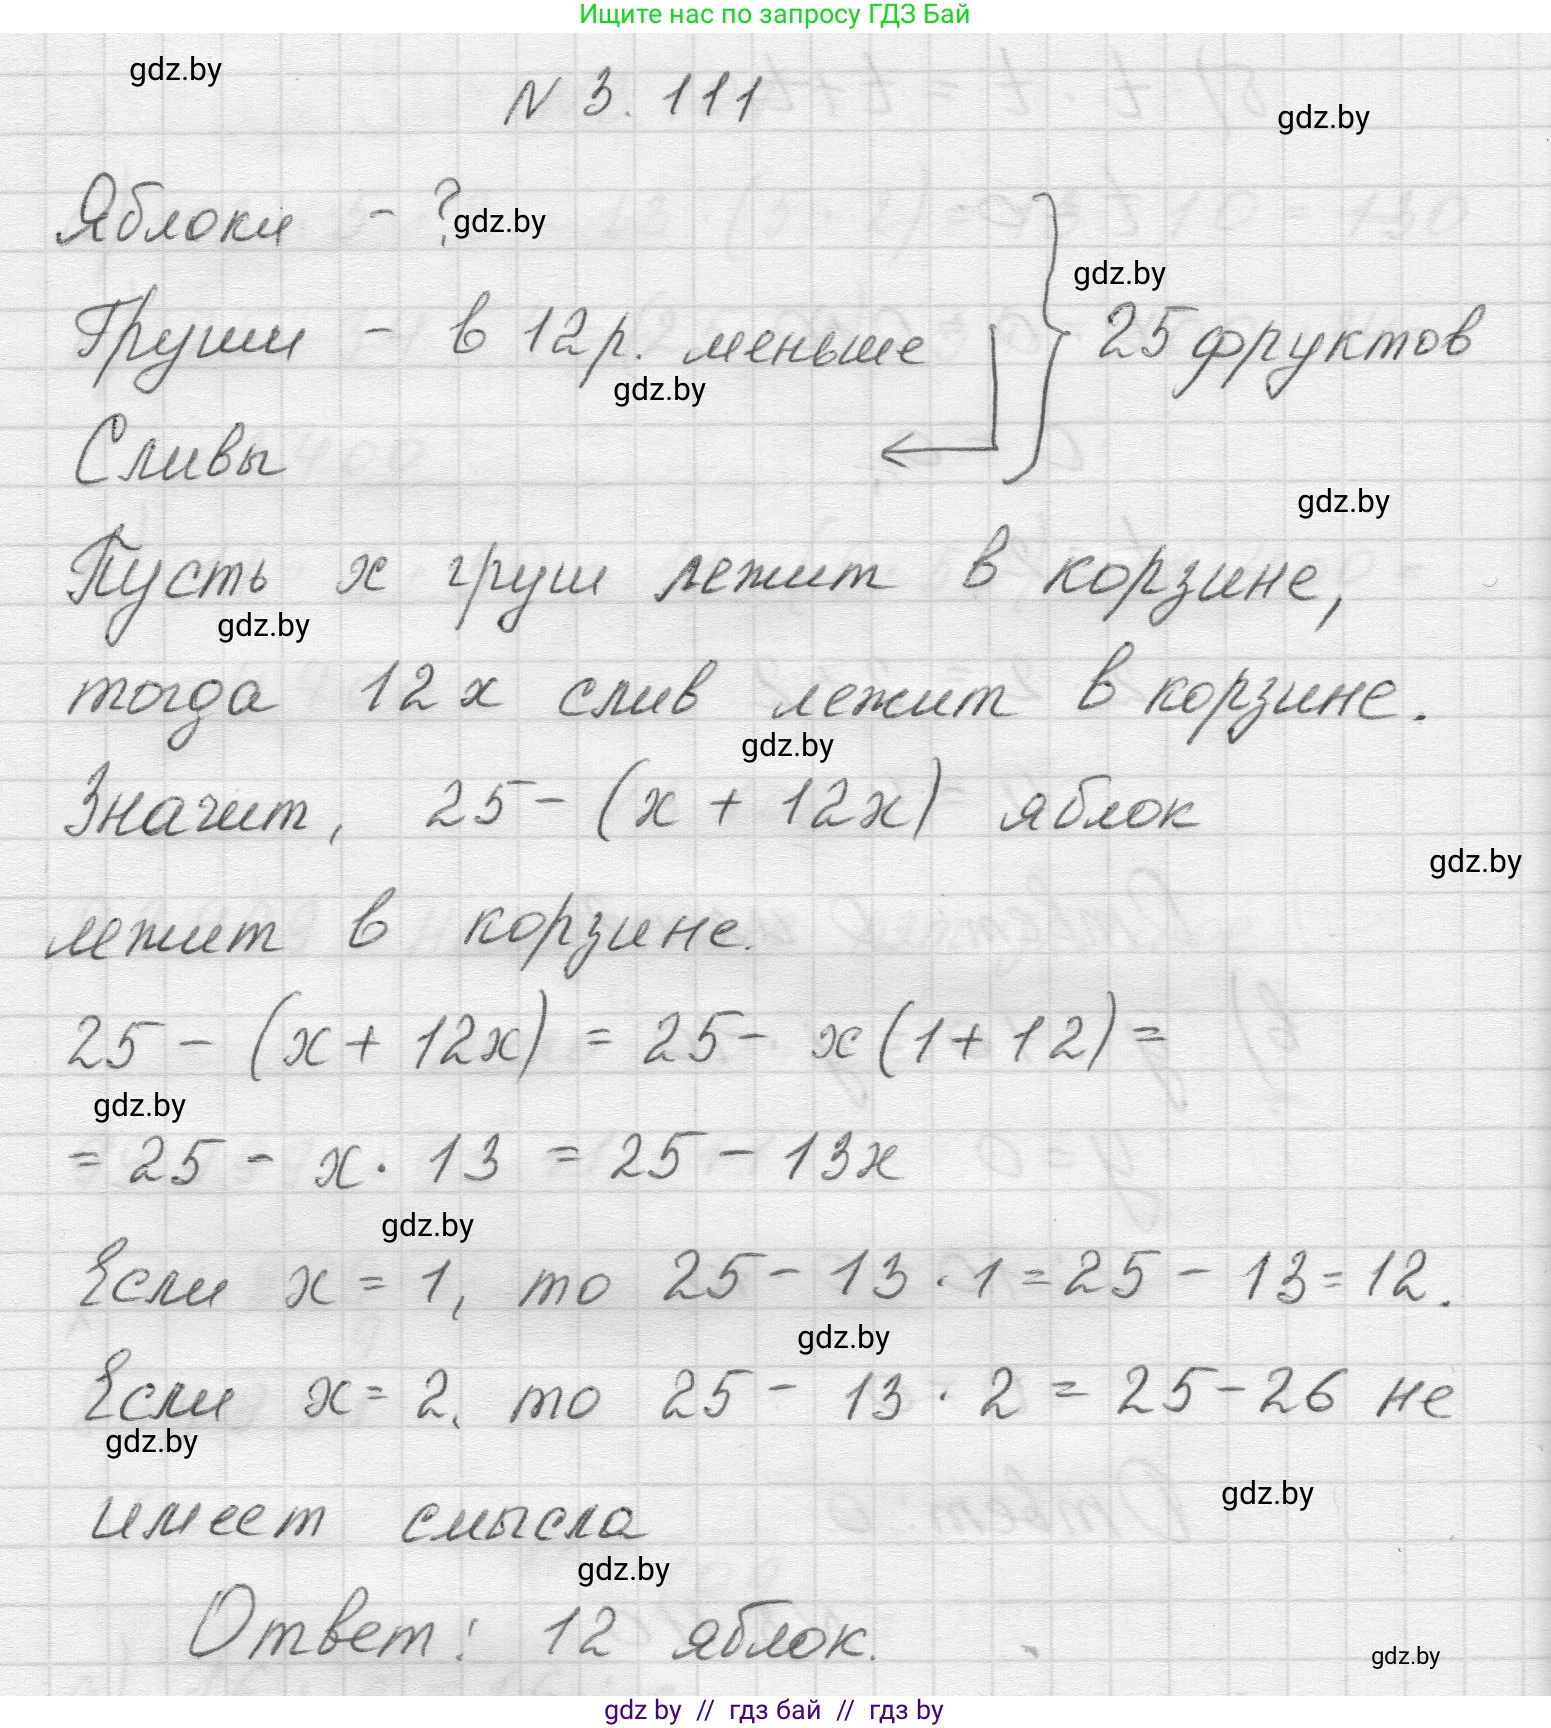 Ищите нас по запросу ГДЗ Бай
gdz.by
N 3. 111
gdz.by
Яблоки - ?
gdz.by
gdz.by
Груши - в 12 р. меньше
25 фруктов
gdz.by
Сливы
gdz.by
Пусть x груш лежит в корзине,
gdz.by
тогда 12x слив лежит в корзине.
gdz.by
Значит, 25 - (x + 12x) яблок
gdz.by
лежит в корзине.
25 - (x + 12x) = 25 - x (1 + 12) =
gdz.by
= 25 - x · 13 = 25 - 13x
gdz.by
Если x = 1, то 25 - 13 · 1 = 25 - 13 = 12.
gdz.by
Если x = 2, то 25 - 13 · 2 = 25 - 26 не
gdz.by
имеет смысла
gdz.by
gdz.by
Ответ: 12 яблок.
gdz.by
gdz by // гдз бай // гдз by